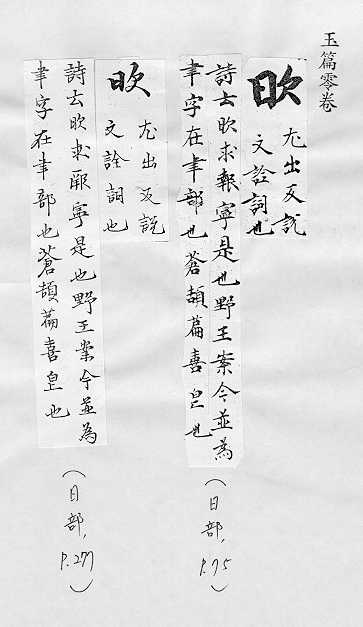 玉篇零卷
欥
尤出反說
文詮詞也
詩云欥求報寧是也野王案今並為
聿字在聿部也蒼頡篇喜皇也
（日部，P.75）
欥
尤出反說
文詮詞也
詩云欥求厥寧是也野王案今並為
聿字在聿部也蒼頡篇喜皇也
（日部，P.277）